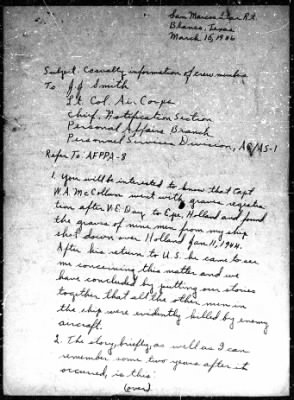 San Marcos Star Rt.
Blanco, Texas
March 15, 1946
Subject: Casualty information of crew member
To J.J. Smith
Lt. Col. Air Corps
Chief, Notification Section
Personal Affairs Branch
Personnel Services Division, AC/AS-1
Refer To: AFPPA-8
1. You will be interested to know that Capt
W.A. McCollum went with graves registra
tion after V-E Day to Epe, Holland and found
the graves of nine men from my ship
shot down over Holland Jan 11, 1944.
After his return to U.S. he came to see
me concerning this matter and we
have concluded by putting our stories
together that all the other men in
the ship were evidently killed by enemy
aircraft.
2. The story, briefly, as well as I can
remember some two years after it
occurred, is this:
(over)